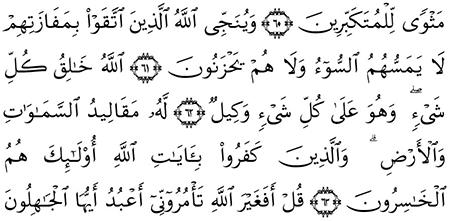 مَثْوًى لِّلْمُتَكَبِّرِينَ ۝٦٠ وَيُنَجِّى اللَّهُ الَّذِينَ اتَّقَوْا۟ بِمَفَازَتِهِمْ
لَا يَمَسُّهُمُ السُّوٓءُ وَلَا هُمْ يَحْزَنُونَ ۝٦١ اللَّهُ خَـٰلِقُ كُلِّ
شَىْءٍۖ وَهُوَ عَلَىٰ كُلِّ شَىْءٍ وَكِيلٌ ۝٦٢ لَّهُۥ مَقَالِيدُ السَّمَـٰوَٰتِ
وَالْأَرْضِۗ وَالَّذِينَ كَفَرُوا۟ بِـَٔايَـٰتِ اللَّهِ أُو۟لَـٰٓئِكَ هُمُ
الْخَـٰسِرُونَ ۝٦٣ قُلْ أَفَغَيْرَ اللَّهِ تَأْمُرُوٓنِّىٓ أَعْبُدُ أَيُّهَا الْجَـٰهِلُونَ